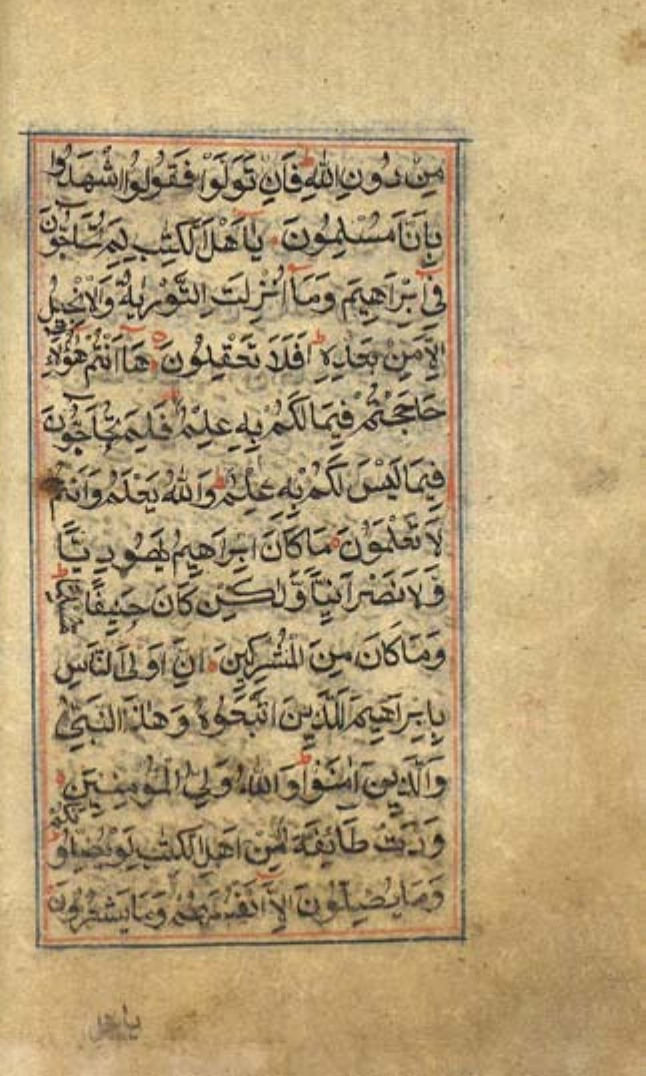 مِنْ دُونِ اللّٰهِ فَاِنْ تَوَلَّوْا فَقُولُوا اشْهَدُوا
بِاَنَّا مُسْلِمُونَ يَا اَهْلَ الْكِتٰبِ لِمَ تُحَآجُّونَ
فِٓى اِبْرَاهِيمَ وَمَٓا اُنْزِلَتِ التَّوْرٰيةُ وَالْاِنْجِيلُ
اِلَّا مِنْ بَعْدِهٖ اَفَلَا تَعْقِلُونَ هَٓا اَنْتُمْ هٰٓؤُلَٓاءِ
حَاجَجْتُمْ فِيمَا لَكُمْ بِهٖ عِلْمٌ فَلِمَ تُحَآجُّونَ
فِيمَا لَيْسَ لَكُمْ بِهٖ عِلْمٌ وَاللّٰهُ يَعْلَمُ وَاَنْتُمْ
لَا تَعْلَمُونَ مَا كَانَ اِبْرَاهِيمُ يَهُودِيًّا
وَّلَا نَصْرَانِيًّا وَّلٰكِنْ كَانَ حَنِيفًا مُسْلِمًا
وَمَا كَانَ مِنَ الْمُشْرِكِينَ اِنَّ اَوْلَى النَّاسِ
بِاِبْرَاهِيمَ لَلَّذِينَ اتَّبَعُوهُ وَهٰذَا النَّبِىُّ
وَالَّذِينَ اٰمَنُوْا وَاللّٰهُ وَلِىُّ الْمُؤْمِنِينَ
وَدَّتْ طَٓائِفَةٌ مِّنْ اَهْلِ الْكِتٰبِ لَوْ يُضِلُّونَكُمْ
وَمَا يُضِلُّونَ اِلَّٓا اَنْفُسَهُمْ وَمَا يَشْعُرُونَ
يا اهل